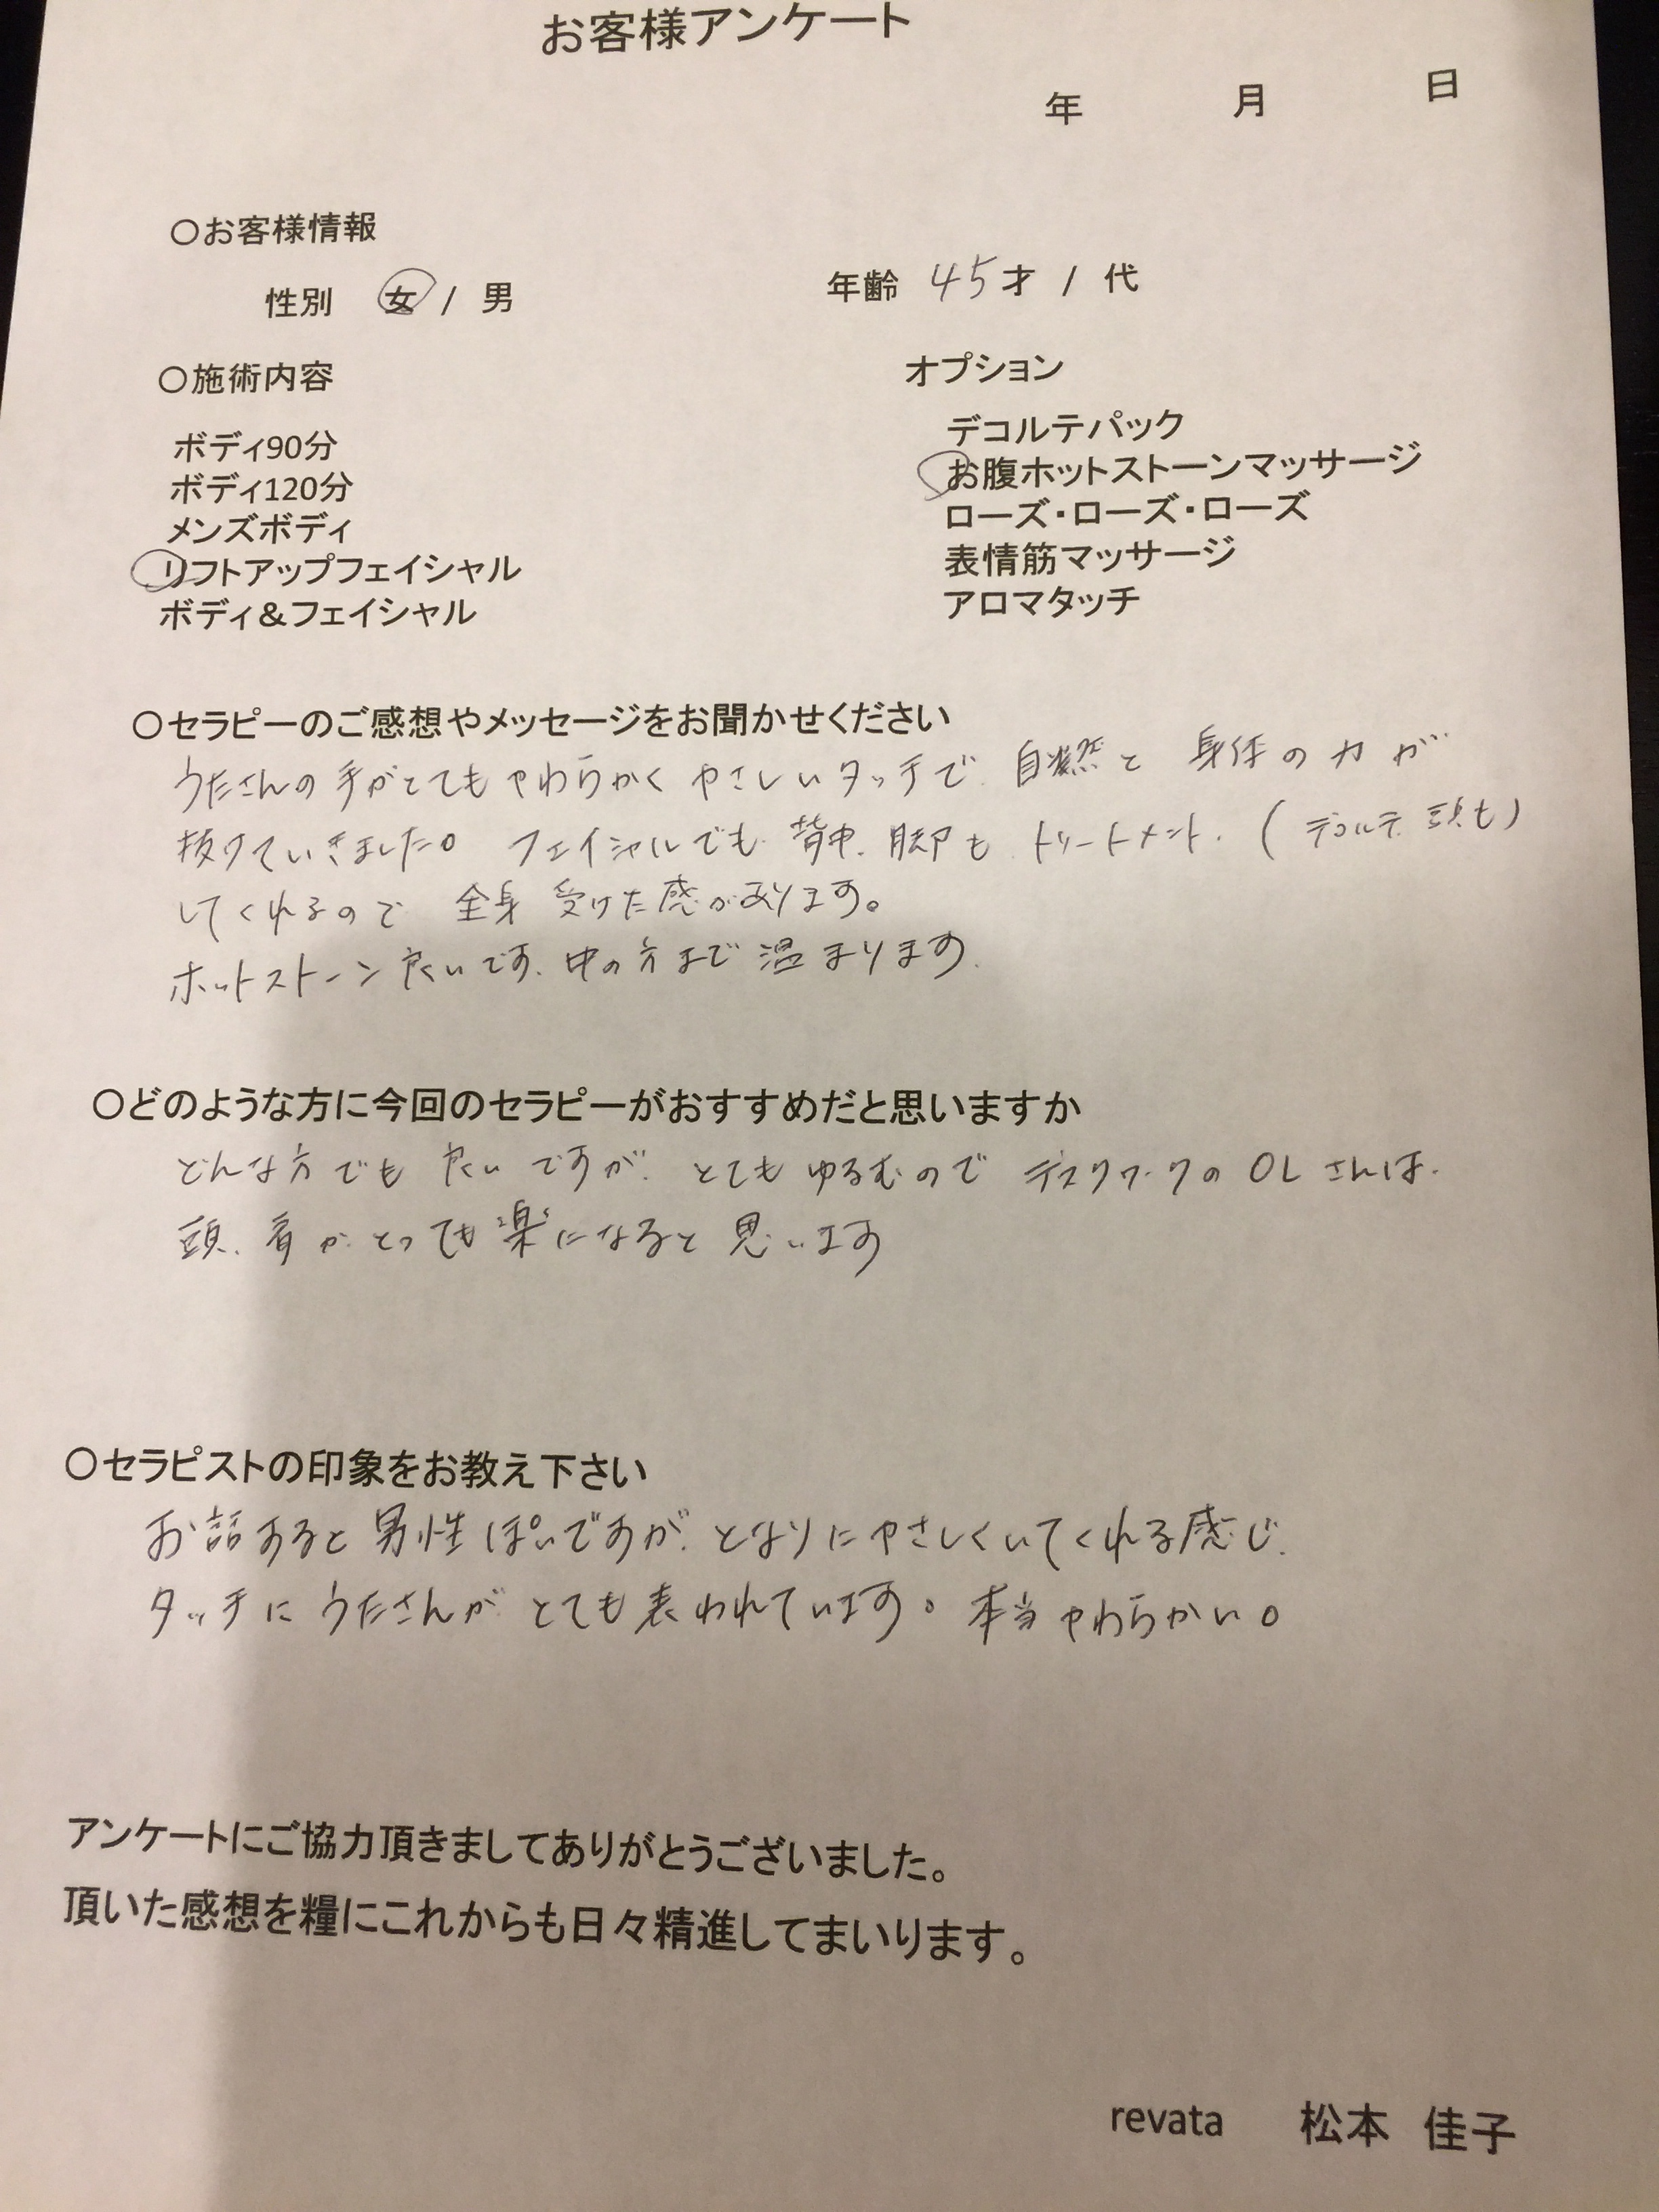 お客様アンケート
年 月 日
〇お客様情報
性別 女 / 男 年齢 45才 / 代
〇施術内容 オプション
ボディ90分 デコルテパック
ボディ120分 お腹ホットストーンマッサージ
メンズボディ ローズ・ローズ・ローズ
リフトアップフェイシャル 表情筋マッサージ
ボディ&フェイシャル アロマタッチ
〇セラピーのご感想やメッセージをお聞かせください
うたさんの手がとてもやわらかくやさしいタッチで、自然と身体の力が
抜けていきました。フェイシャルでも、背中、脚もトリートメント、(デコルテ、頭も)
してくれるので全身受けた感があります。
ホットストーン良いです、中の方まで温まります、
〇どのような方に今回のセラピーがおすすめだと思いますか
どんな方でも良いですが、とてもゆるむのでデスクワークのOLさんは、
頭、肩がとっても楽になると思います
〇セラピストの印象をお教え下さい
お話すると男性ぽいですが、となりにやさしくいてくれる感じ、
タッチにうたさんがとても表われています。本当やわらかい。
アンケートにご協力頂きましてありがとうございました。
頂いた感想を糧にこれからも日々精進してまいります。
revata 松本 佳子